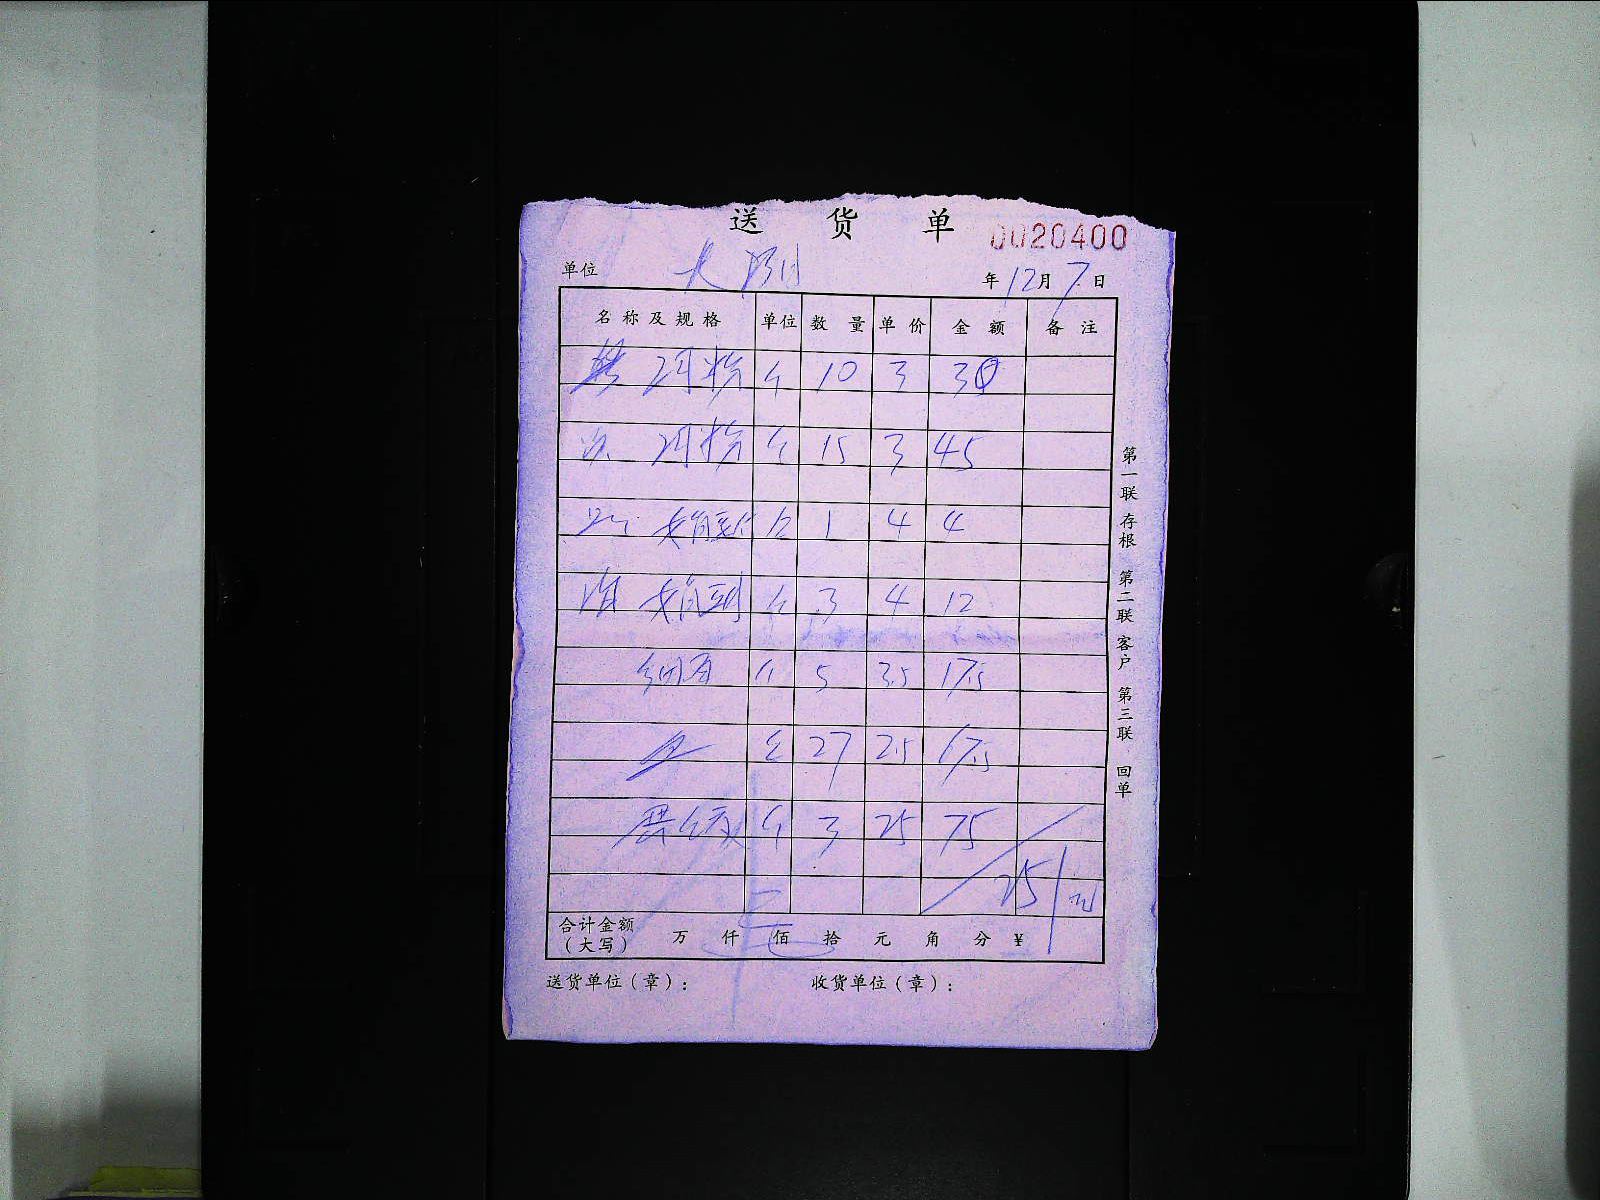 送 货 单
0020400
单位 大 年12月7日
名称及规格 单位 数量 单价 金额 备注
河粉 个 10 3 30
河粉 个 15 3 45
个 1 4 4
个 3 4 12
个 5 3.5 17.5
个 27 2.5 67.5
个 3 25 75
251元
合计金额（大写） 万 仟 佰 拾 元 角 分 ¥
送货单位（章）： 收货单位（章）：
第一联 存根 第二联 客户 第三联 回单